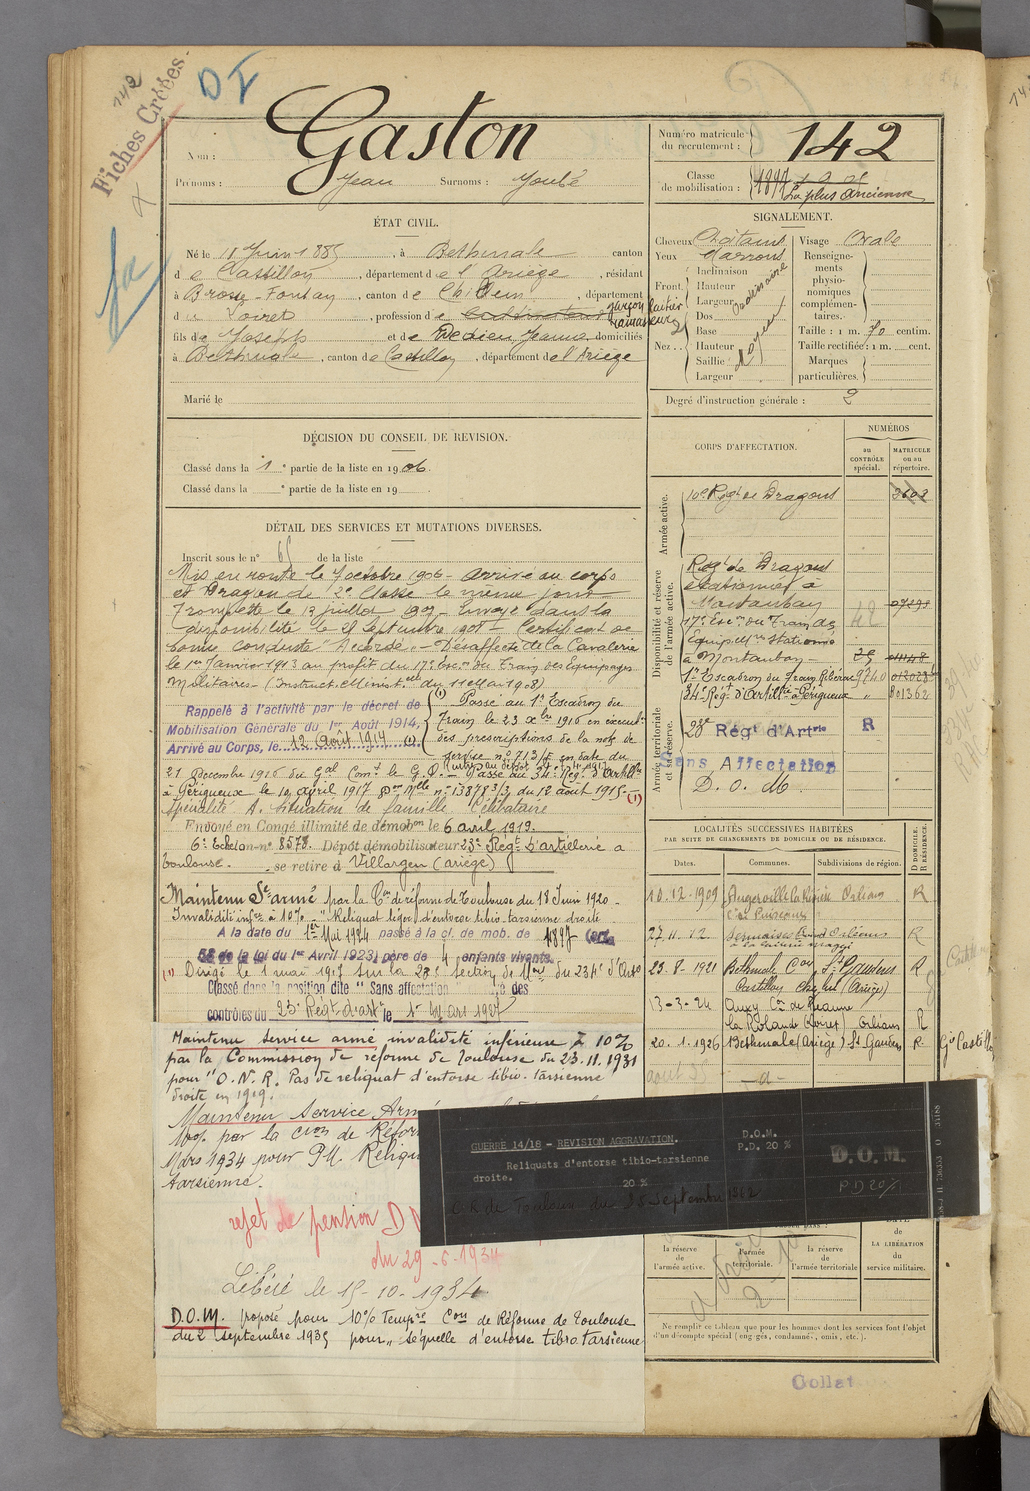 142
Fiches Créées.
D I
Nom : Gaston
Prénoms : Jean Surnoms : Youbé
Numéro matricule
du recrutement : 142
Classe
de mobilisation : 1897
La plus ancienne
ÉTAT CIVIL.
Né le 18 Juin 1885, à Bethmale canton
de Castillon, département de l'Ariège, résidant
à Brosse-Fontay, canton de, département
du Loiret, profession de cultivateur garçon laitier
ramasseur
fils de Joseph et de Dedieu Jeanne domiciliés
à Bethmale, canton de Castillon, département de l'Ariège
Marié le
SIGNALEMENT.
Cheveux Châtains
Yeux Marrons
Front. Inclinaison
Hauteur
Largeur
Nez.. Dos
Base
Hauteur
Saillie
Largeur
Moyen
Visage Ovale
Renseigne-
ments
physio-
nomiques
complémen-
taires.
Taille : 1 m. 70 centim.
Taille rectifiée : 1 m. cent.
Marques
particulières.
Degré d'instruction générale : 2
DÉCISION DU CONSEIL DE REVISION.
Classé dans la 1e partie de la liste en 1906.
Classé dans la e partie de la liste en 19
DÉTAIL DES SERVICES ET MUTATIONS DIVERSES.
Inscrit sous le n° 65 de la liste
Mis en route le 7 octobre 1906 - Arrivé au corps
et Dragon de 2e Classe le même jour
Trompette le 13 juillet 1907 - Envoyé dans la
disponibilité le 25 Septembre 1908 - Certificat de
bonne conduite "Accordé" - Désaffecté de la Cavalerie
le 1er Janvier 1913 au profit du 17e Escon du Train des Equipages
Militaires - (Instruct. Minist.elle du 11 Mai 1908)
Rappelé à l'activité par le décret de
Mobilisation Générale du 1er Août 1914.
Arrivé au Corps, le 12 Août 1914 (1)
(1) Passé au 1er Escadron du
Train le 23 Xbre 1916 en exécution
des prescriptions de la note de
service n° 713/E en date du
21 Décembre 1916 du Gal Comt le G.Q. - Passé au 34e Rég. d'Artillie
à Périgueux le 19 Avril 1917 Don Mlle n° 13878 3/3 du 12 août 1915 - (1)
Spécialité A. Situation de famille Célibataire
Envoyé en Congé illimité de démobon le 6 avril 1919.
6e Echelon n° 8578. Dépôt démobilisateur 23e Régt d'artillerie à
Toulouse. se retire à Villargen (Ariège)
Maintenu Sce armé par la Con de réforme de Toulouse du 18 Juin 1920 -
Invalidité infre à 10% - "Reliquat léger d'entorse tibio-tarsienne droite
A la date du 1er Mai 1924 passé à la cl. de mob. de 1897 (art.
58 de la loi du 1er Avril 1923) père de 4 enfants vivants.
(1) Dirigé le 1 mai 1917 sur la 28e section de Mons du 234e d'Arte
Classé dans la position dite "Sans affectation" des
contrôles du 23e Régt d'artie le 1er Mars 1927
Maintenu service armé invalidité inférieure à 10%
par la Commission de réforme de Toulouse du 23.11.1931
pour "O.N.R. Pas de reliquat d'entorse tibio-tarsienne
droite en 1919.
Maintenu Service Armé
10% par la Cion de Réfor
Mars 1934 pour P.M. Reliqu
tarsienne.
rejet de pension D
du 29-6-1934
Libéré le 15-10-1934
D.O.M. proposé pour 10% Tempre Con de Réforme de Toulouse
du 2 septembre 1935 pour "séquelle d'entorse tibio tarsienne
CORPS D'AFFECTATION.
NUMÉROS
au
CONTRÔLE
spécial.
MATRICULE
ou au
répertoire.
Armée active.
10e Régt de Dragons 3602
Disponibilité et réserve
de l'armée active.
Régt de Dragons
stationné à
Montauban
17e Escon du Train des 42
Equip. Mres stationné
à Montauban -
1er Escadron du Train 9240
34e Régt d'Artillie à Périgueux " 801362
Armée territoriale
et sa réserve.
28e Régt d'Artrie R
Sans Affectation
D. O. M.
LOCALITÉS SUCCESSIVES HABITÉES
PAR SUITE DE CHANGEMENTS DE DOMICILE OU DE RÉSIDENCE.
Dates. Communes. Subdivisions de région. D DOMICILE. R RÉSIDENCE.
10.12.1909 Augerville la Rivière Orléans R
Con Puiseaux
27.11.12 Sermaises Orléans R
23-8-1921 Bethmale Con St Gaudens R
Castillon (Ariège)
13-3-24 Auxy Con de Beaune
la Rolande (Loiret) Orléans R
20.1.1926 Bethmale (Ariège) St Gaudens R
GUERRE 14/18 - REVISION AGGRAVATION.
Reliquats d'entorse tibio-tarsienne
droite.
20 %
C.R de Toulouse du 25 Septembre 1962
D.O.M.
P.D. 20 %
D.O.M.
PD 20%
la réserve
de
l'armée active.
l'armée
territoriale.
la réserve
de
l'armée territoriale
DATE
de
LA LIBÉRATION
du
service militaire.
Ne remplir ce tableau que pour les hommes dont les services font l'objet
d'un décompte spécial (engagés, condamnés, omis, etc.).
Collat